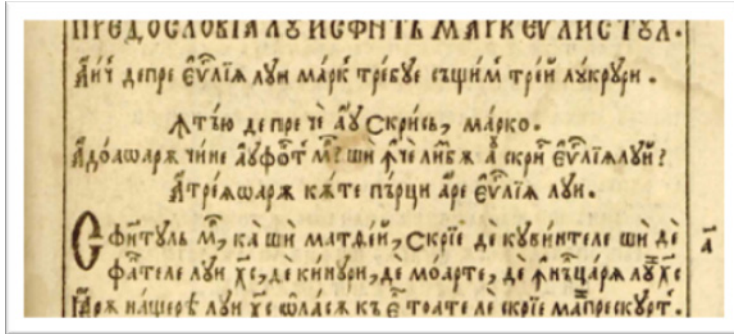 ПРЕДОСЛОВІА ЛꙊИ СФНТЬ МАРК ЕѴЛИСТꙊЛ.
Аи҆ч депре е҆ѵ҃лїѧ лꙋи ма́рк тре́бꙋе същи́м тре́й лꙋкрꙋри .
Ꙟтѫ́ю депре чѐ аꙋ Скри́сь, ма́рко.
Адо́аѡарѫ чи́не аꙋфо́т м҃? ши ꙟ҆че ли́бѫ а҆ скри́ е҆ѵ҃лїѧлꙋй?
Атре́ѧѡарѫ кѫ́те пъ́рци а҆ре е҆ѵ҃лїѧ лꙋи.
Сфи́тꙋль м҃, ка̀ шѝ матѳе́й, Скрі́е дѐ кꙋви́нтеле шѝ дѐ а҃
фа́теле лꙋи х҃с, дѐ ки́нꙋри, дѐ мо́арте, дѐ ꙟ҆нъца́рѧ лꙋ х҃с
Ꙗрѫ на́щерѣ лꙋи х҃с ѡ҆ла́сѫ къ е҃ тоате лѐ скріе ма҆ прескꙋ́рт.